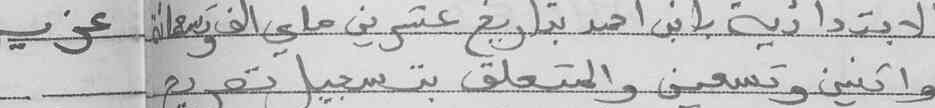 لابتدائية بابن احمد بتاريخ عشرين ماي الف وتسعمائة عزيب
واثنين وتسعين والمتعلق بتسجيل تصريح